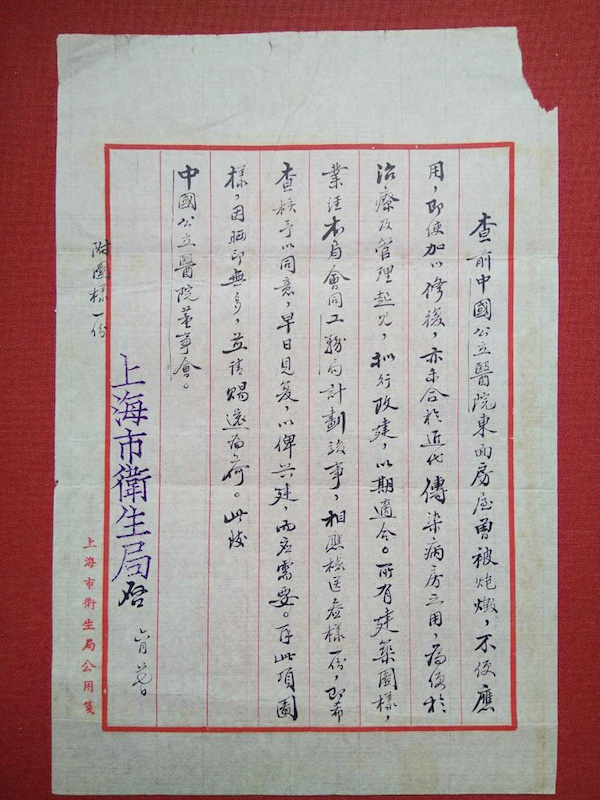 查前中國公立醫院東面房屋曾被炮燬，不便應
用，即使加以修復，亦未合於近代傳染病房之用，為便於
治療及管理起見，擬行改建，以期適合。所有建築圖樣，
業經本局會同工務局計劃竣事，相應檢送藍樣一份，即希
查核予以同意，早日見复，以俾兴建，而應需要。再此項圖
樣，因晒印無多，並請賜還為荷。此致
中國公立醫院董事會。
附圖樣一份
上海市衛生局啓 六月 日
上海市衛生局公用箋